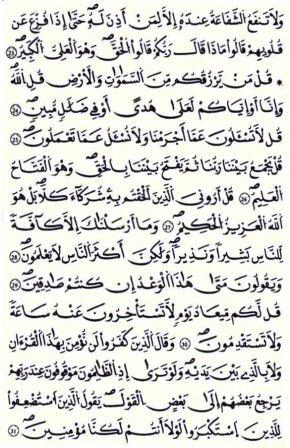 وَلَا تَنفَعُ الشَّفَاعَةُ عِندَهُ إِلَّا لِمَنْ أَذِنَ لَهُ حَتَّىٰ إِذَا فُزِّعَ عَن
قُلُوبِهِمْ قَالُوا مَاذَا قَالَ رَبُّكُمْ قَالُوا الْحَقَّ وَهُوَ الْعَلِيُّ الْكَبِيرُ ٢٣
* قُلْ مَن يَرْزُقُكُم مِّنَ السَّمَٰوَٰتِ وَالْأَرْضِ قُلِ اللَّهُ
وَإِنَّا أَوْ إِيَّاكُمْ لَعَلَىٰ هُدًى أَوْ فِي ضَلَٰلٍ مُّبِينٍ ٢٤
قُل لَّا تُسْـَٔلُونَ عَمَّا أَجْرَمْنَا وَلَا نُسْـَٔلُ عَمَّا تَعْمَلُونَ ٢٥
قُلْ يَجْمَعُ بَيْنَنَا رَبُّنَا ثُمَّ يَفْتَحُ بَيْنَنَا بِالْحَقِّ وَهُوَ الْفَتَّاحُ
الْعَلِيمُ ٢٦ قُلْ أَرُونِيَ الَّذِينَ أَلْحَقْتُم بِهِ شُرَكَاءَ كَلَّا بَلْ هُوَ
اللَّهُ الْعَزِيزُ الْحَكِيمُ ٢٧ وَمَا أَرْسَلْنَٰكَ إِلَّا كَافَّةً
لِّلنَّاسِ بَشِيرًا وَنَذِيرًا وَلَٰكِنَّ أَكْثَرَ النَّاسِ لَا يَعْلَمُونَ ٢٨
وَيَقُولُونَ مَتَىٰ هَٰذَا الْوَعْدُ إِن كُنتُمْ صَٰدِقِينَ ٢٩
قُل لَّكُم مِّيعَادُ يَوْمٍ لَّا تَسْتَـْٔخِرُونَ عَنْهُ سَاعَةً
وَلَا تَسْتَقْدِمُونَ ٣٠ وَقَالَ الَّذِينَ كَفَرُوا لَن نُّؤْمِنَ بِهَٰذَا الْقُرْءَانِ
وَلَا بِالَّذِي بَيْنَ يَدَيْهِ وَلَوْ تَرَىٰ إِذِ الظَّٰلِمُونَ مَوْقُوفُونَ عِندَ رَبِّهِمْ
يَرْجِعُ بَعْضُهُمْ إِلَىٰ بَعْضٍ الْقَوْلَ يَقُولُ الَّذِينَ اسْتُضْعِفُوا
لِلَّذِينَ اسْتَكْبَرُوا لَوْلَا أَنتُمْ لَكُنَّا مُؤْمِنِينَ ٣١